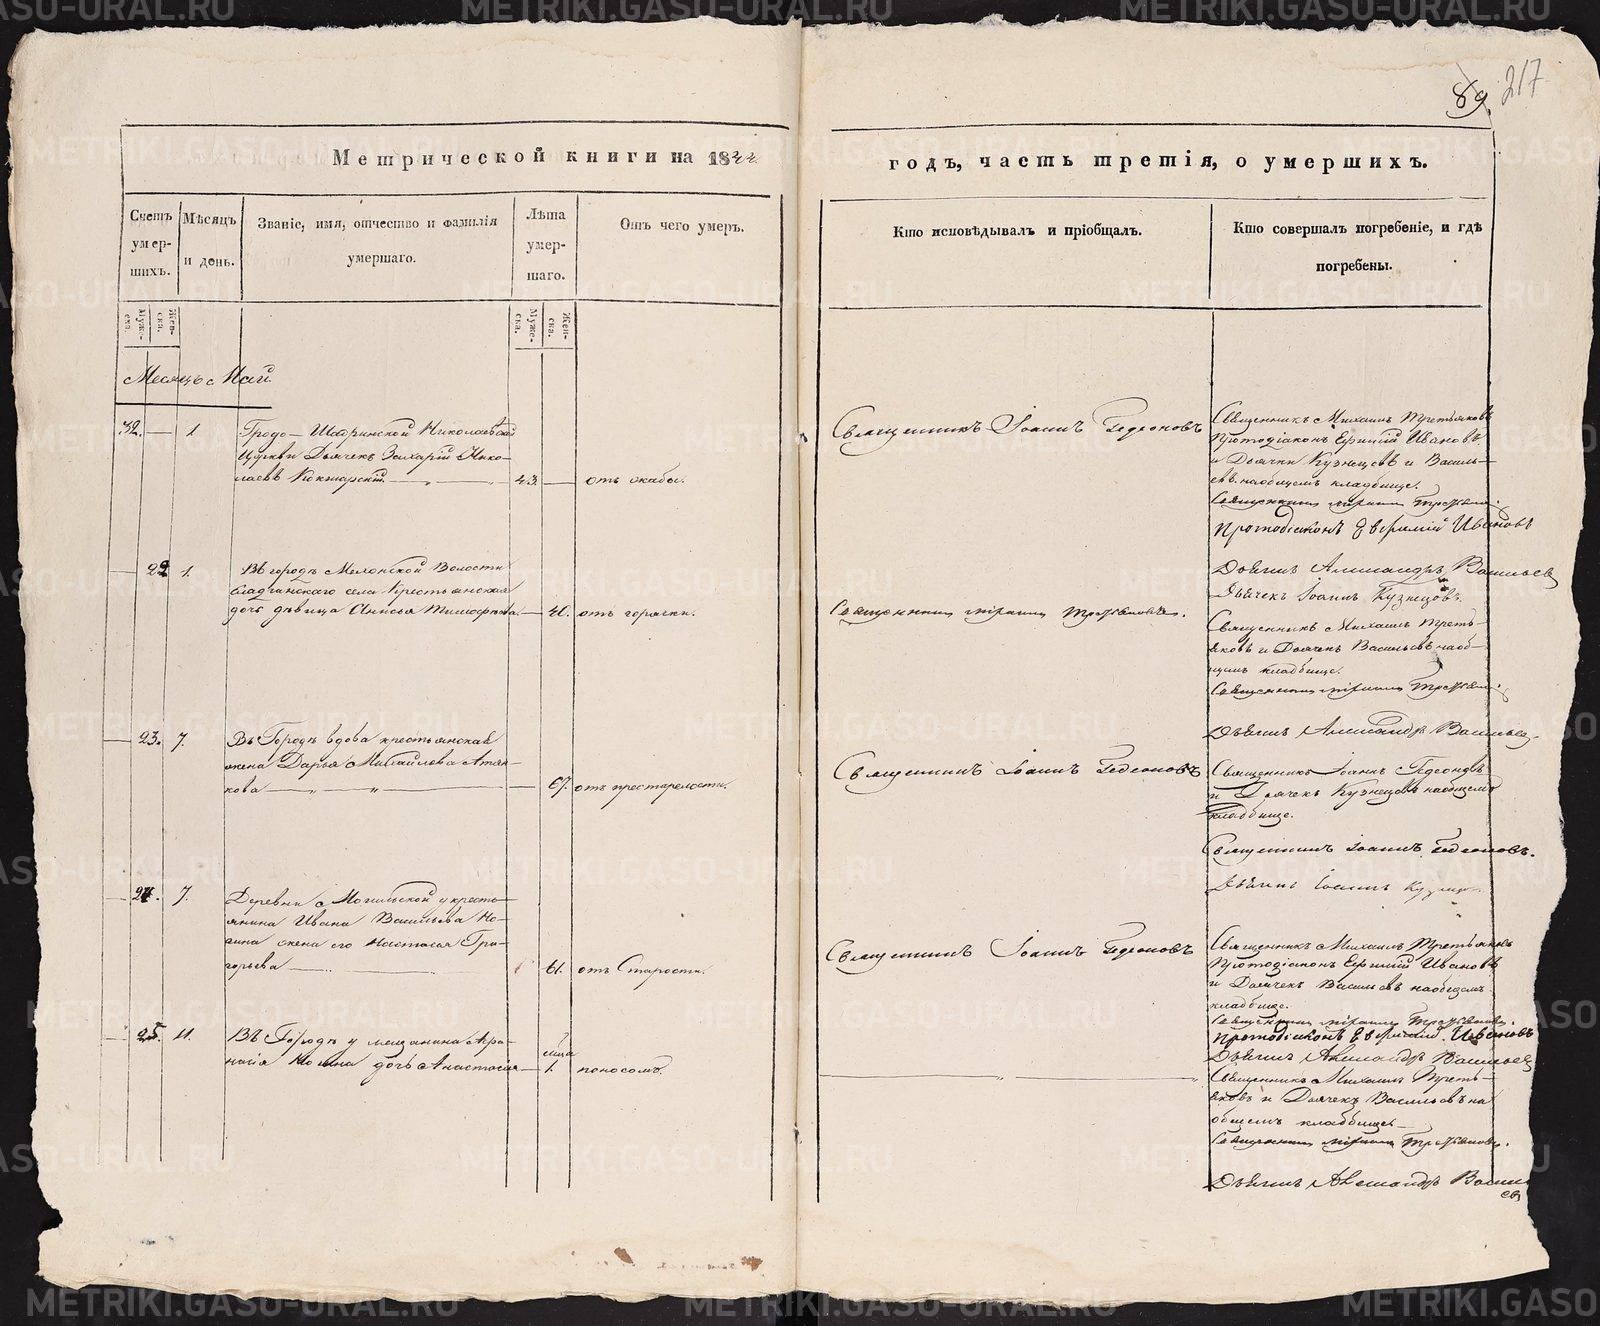 89. 217
Метрической книги на 1844
годъ, часть третія, о умершихъ.
Счетъ умер-шихъ.
Мѣсяцъ и день.
Званіе, имя, отчество и фамилія умершаго.
Лѣта умер-шаго.
Отъ чего умеръ.
Кто исповѣдывалъ и пріобщалъ.
Кто совершалъ погребеніе, и гдѣ погребены.
Муже-ска.
Жен-ска.
Муже-ска.
Жен-ска.
Месяцъ Май
32. — 1
Градо-Шадринской Николаевской
Церкви Дьячекъ Захарій Нико-
лаевъ Кокшарскій — 43. —
отъ скабы.
Священникъ Іоаннъ Гедеоновъ
Священникъ Михаилъ Третьяковъ
Протодіаконъ Ефимій Ивановъ
и Дьячки Кузнецовъ и Василь-
евъ на общемъ кладбище.
Священникъ Михаилъ Третьяковъ
Протодіаконъ Евфимій Ивановъ
Дьячекъ Александръ Васильев
Дьячекъ Іоаннъ Кузнецовъ.
22 1.
Въ городѣ Волости
села Крестьянская
дочь девица Анисья — 41.
отъ горячки.
Священникъ Михаилъ Третьяковъ.
Священникъ Михаилъ Треть-
яковъ и Дьячекъ Васильевъ на об-
щемъ кладбище.
Священникъ Михаилъ Третьяковъ
Дьячекъ Александръ Васильев.
23. 7.
Въ Городѣ вдова крестьянская
жена Дарья Михайлова
кова — 67.
отъ престарелости.
Священникъ Іоаннъ Гедеоновъ
Священникъ Іоаннъ Гедеоновъ
и Дьячекъ Кузнецовъ на общемъ
кладбище.
Священникъ Іоаннъ Гедеоновъ.
Дьячекъ Іоаннъ Кузнецовъ
24. 7.
Деревни Могильской у кресть-
янина Ивана Васильева Но-
гина жена его Настасья Гри-
горьева — 61.
отъ Старости.
Священникъ Іоаннъ Гедеоновъ
Священникъ Михаилъ Третьяковъ
Протодіаконъ Ефимій Ивановъ
и Дьячекъ Васильевъ на общемъ
кладбище.
Священникъ Михаилъ Третьяковъ.
Протодіаконъ Евфимій Ивановъ
Дьячекъ Александръ Васильев
25. 11.
Въ Городѣ у мещанина Афа-
насія дочь Анастасія — 1.
поносомъ.
Священникъ Михаилъ Треть-
яковъ и Дьячекъ Васильевъ на
общемъ кладбище
Священникъ Михаилъ Третьяковъ.
Дьячекъ Александръ Василь
ев
METRIKI.GASO-URAL.RU